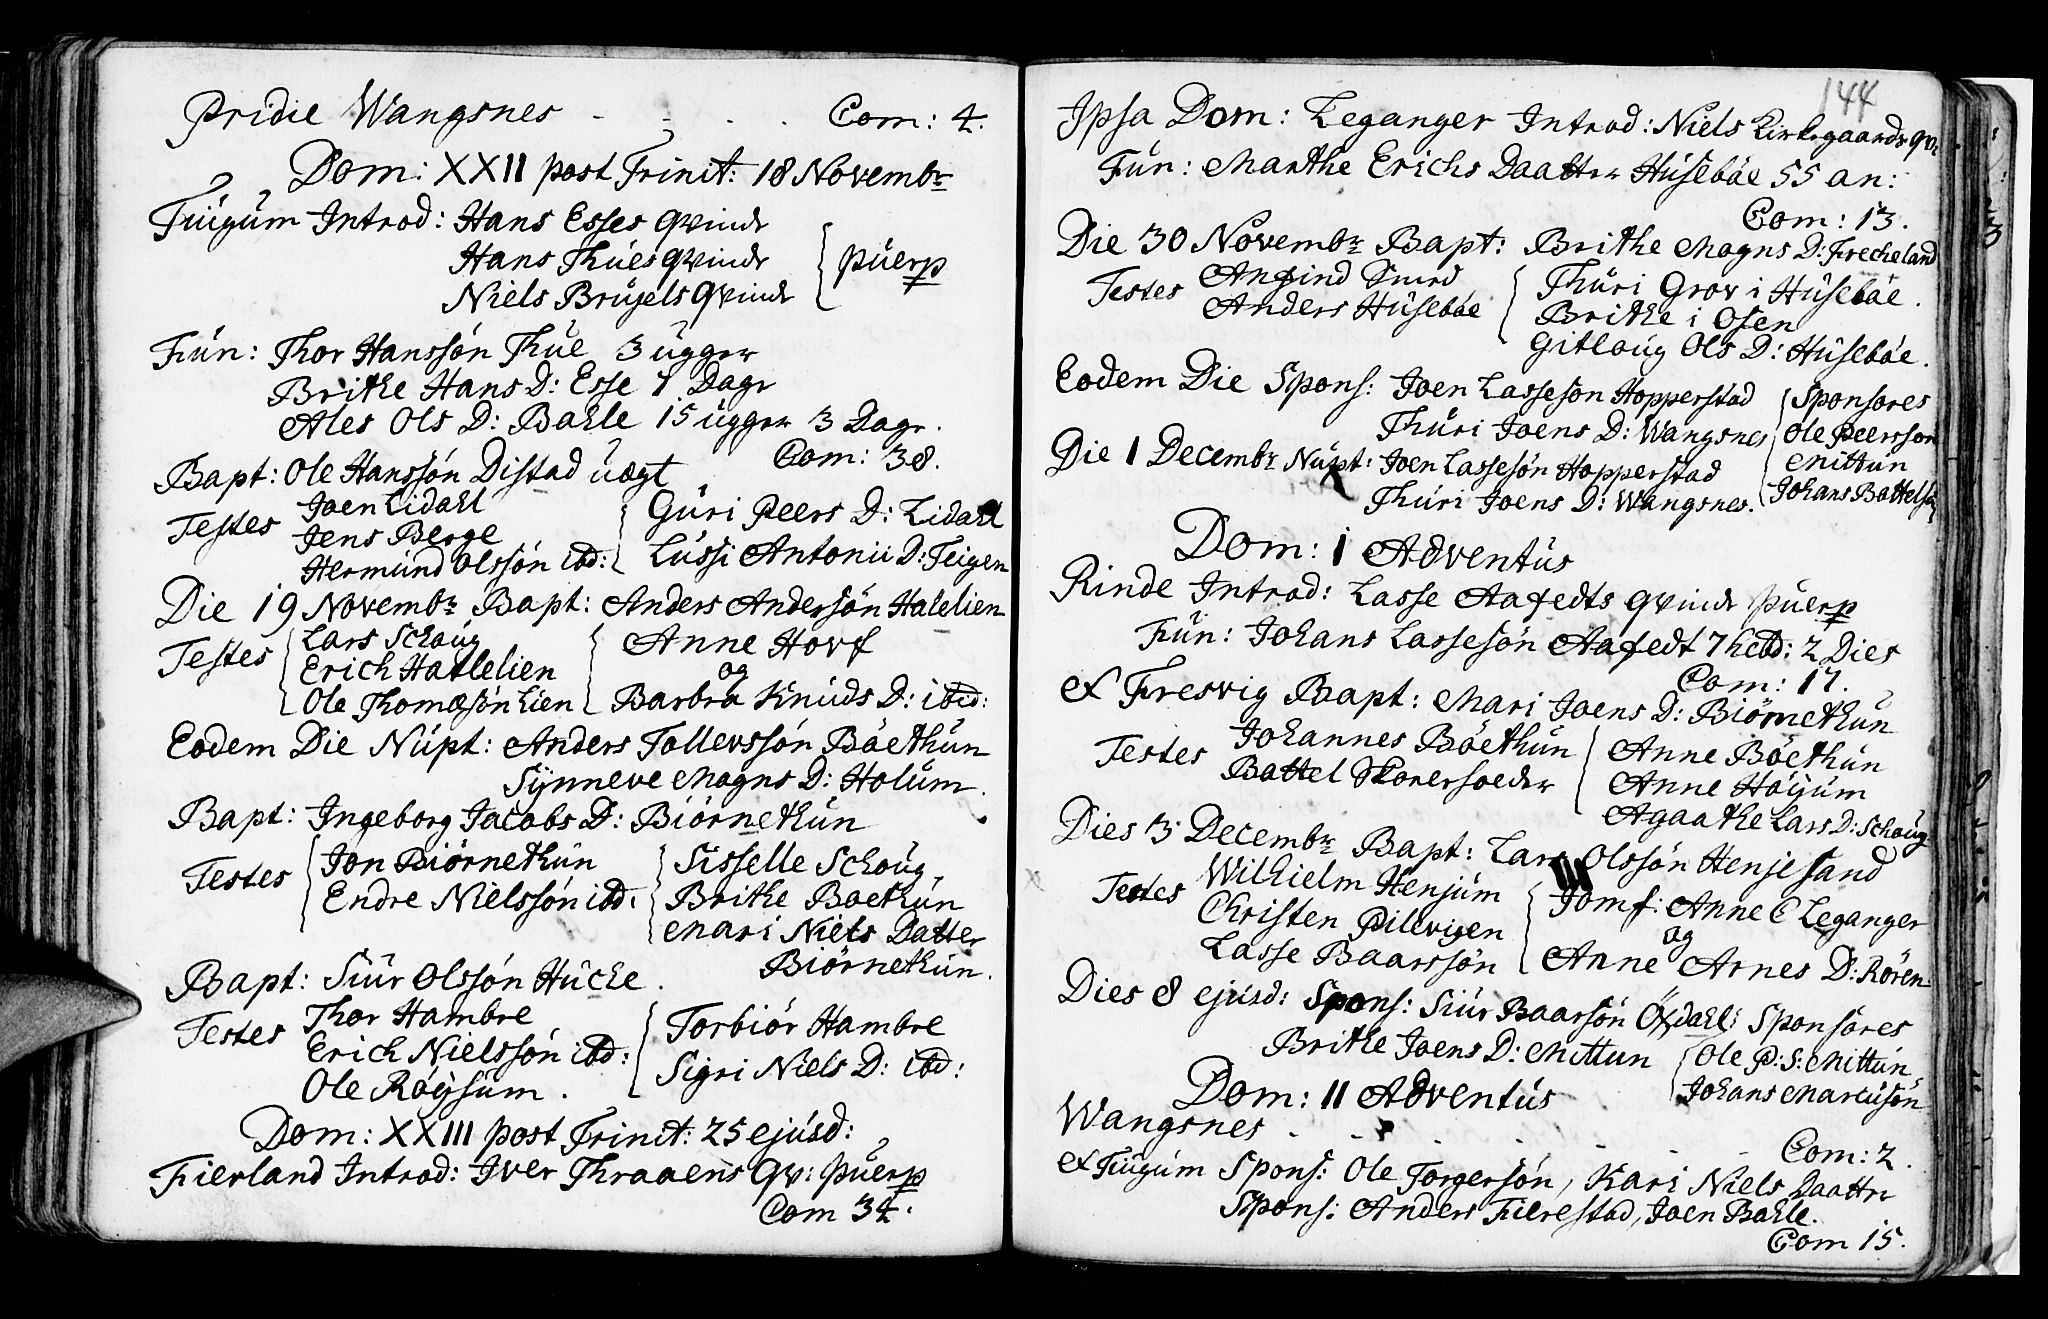 Pridie Wangsnes - - - - Com: 4.
Dom: XXII post Trinit: 18 Novembr
Fiugum Introd: Hans Esses qvindr
Hans Thues qvindr
Niels Brugels qvindr
puerp
Fun: Thor Hanssón Thue 3 ugger
Brithe Hans D: Esse 7 Dagr
Ales Ols D: Bahle 15 ugger 3 Dagr.
Com: 38.
Bapt: Ole Hanssón Distad uægt
Testes Joen Lidahl
Jens Berge
Hermund Olssón ibd:
Guri Peers D: Lidahl
Lussi Antonii D: Teigen
Die 19 Novembr Bapt: Anders Andersón Hatelien
Testes Lars Schoug
Erich Hatlelien
Ole Thomæsón Lien
Anne Hovf
og
Barbra Knuds D: ibid:
Eodem Die Nupt: Anders Tollevssón Böethun
Synneve Magns D: Holum.
Bapt: Ingeborg Jacobs D: Biörnethun
Testes Jon Biörnethun
Endre Nielssón ibd:
Sisselle Schoug,
Brithe Boethun
Mari Niels Datter
Biörnethun.
Bapt: Siur Olssón Huche.
Testes Thor Hambre
Erich Nielssón ibd:
Ole Röysum.
Torbiór Hambre
Sigri Niels D: ibd:
Dom: XXIII post Trinit: 25 ejusd:
Fierland Introd: Iver Thraaens qv: puerp
Com 34.
144
Ipsa Dom: Leganger Introd: Niels Kirkegaards qv:
Fun: Marthe Erichs Daatter Husebóe 55 an:
Com: 13.
Die 30 Novembr Bapt: Brithe Mogns D: Frecheland
Testes Anfind Smed
Anders Husebóe
Thuri Grov i Husebóe.
Brithe i Osen
Gitloug Ols D: Husebóe.
Eodem Die Spons: Joen Lasseson Hopperstad
Thuri Joens D: Wangsnes
Sponsores
Ole Peersson
Mittun
Johans Battels
Die 1 Decembr Nupt: Joen Lassesón Hopperstad
Thuri Joens D: Wangsnes.
Dom: I Adventus
Rinde Introd: Lasse Aafedts qvindr puerp
Fun: Johans Lassesón Aafedt 7 hebd: 2 Dies
Com: 17.
ex Fresvig Bapt: Mari Joens D: Biörnethun
Testes Johannes Böethun
Battel Skorersoeder
Anne Böethun
Anne Höyum
Agaathe Lars D: Schoug
Dies 3 Decembr Bapt: Lars Olssón Henjesand
Testes Wilhielm Henjum
Christen Pilevigen
Lasse Baarssón
Jomf: Anne C Leganger
og
Anne Arnes D: Rören:
Dies 8 ejusd: Spons: Siur Baarsón Öxdahl: Sponsores
Brithe Joens D: Mittun
Ole P: S: Mittun,
Johans Marcusón
Dom: II Adventus
Wangsnes - - - - - - Com: 2.
ex Fiugum Spons: Ole Torgersón, Kari Niels Daattr
Spons: Anders Fierestad, Joen Bahle.
Com 15.